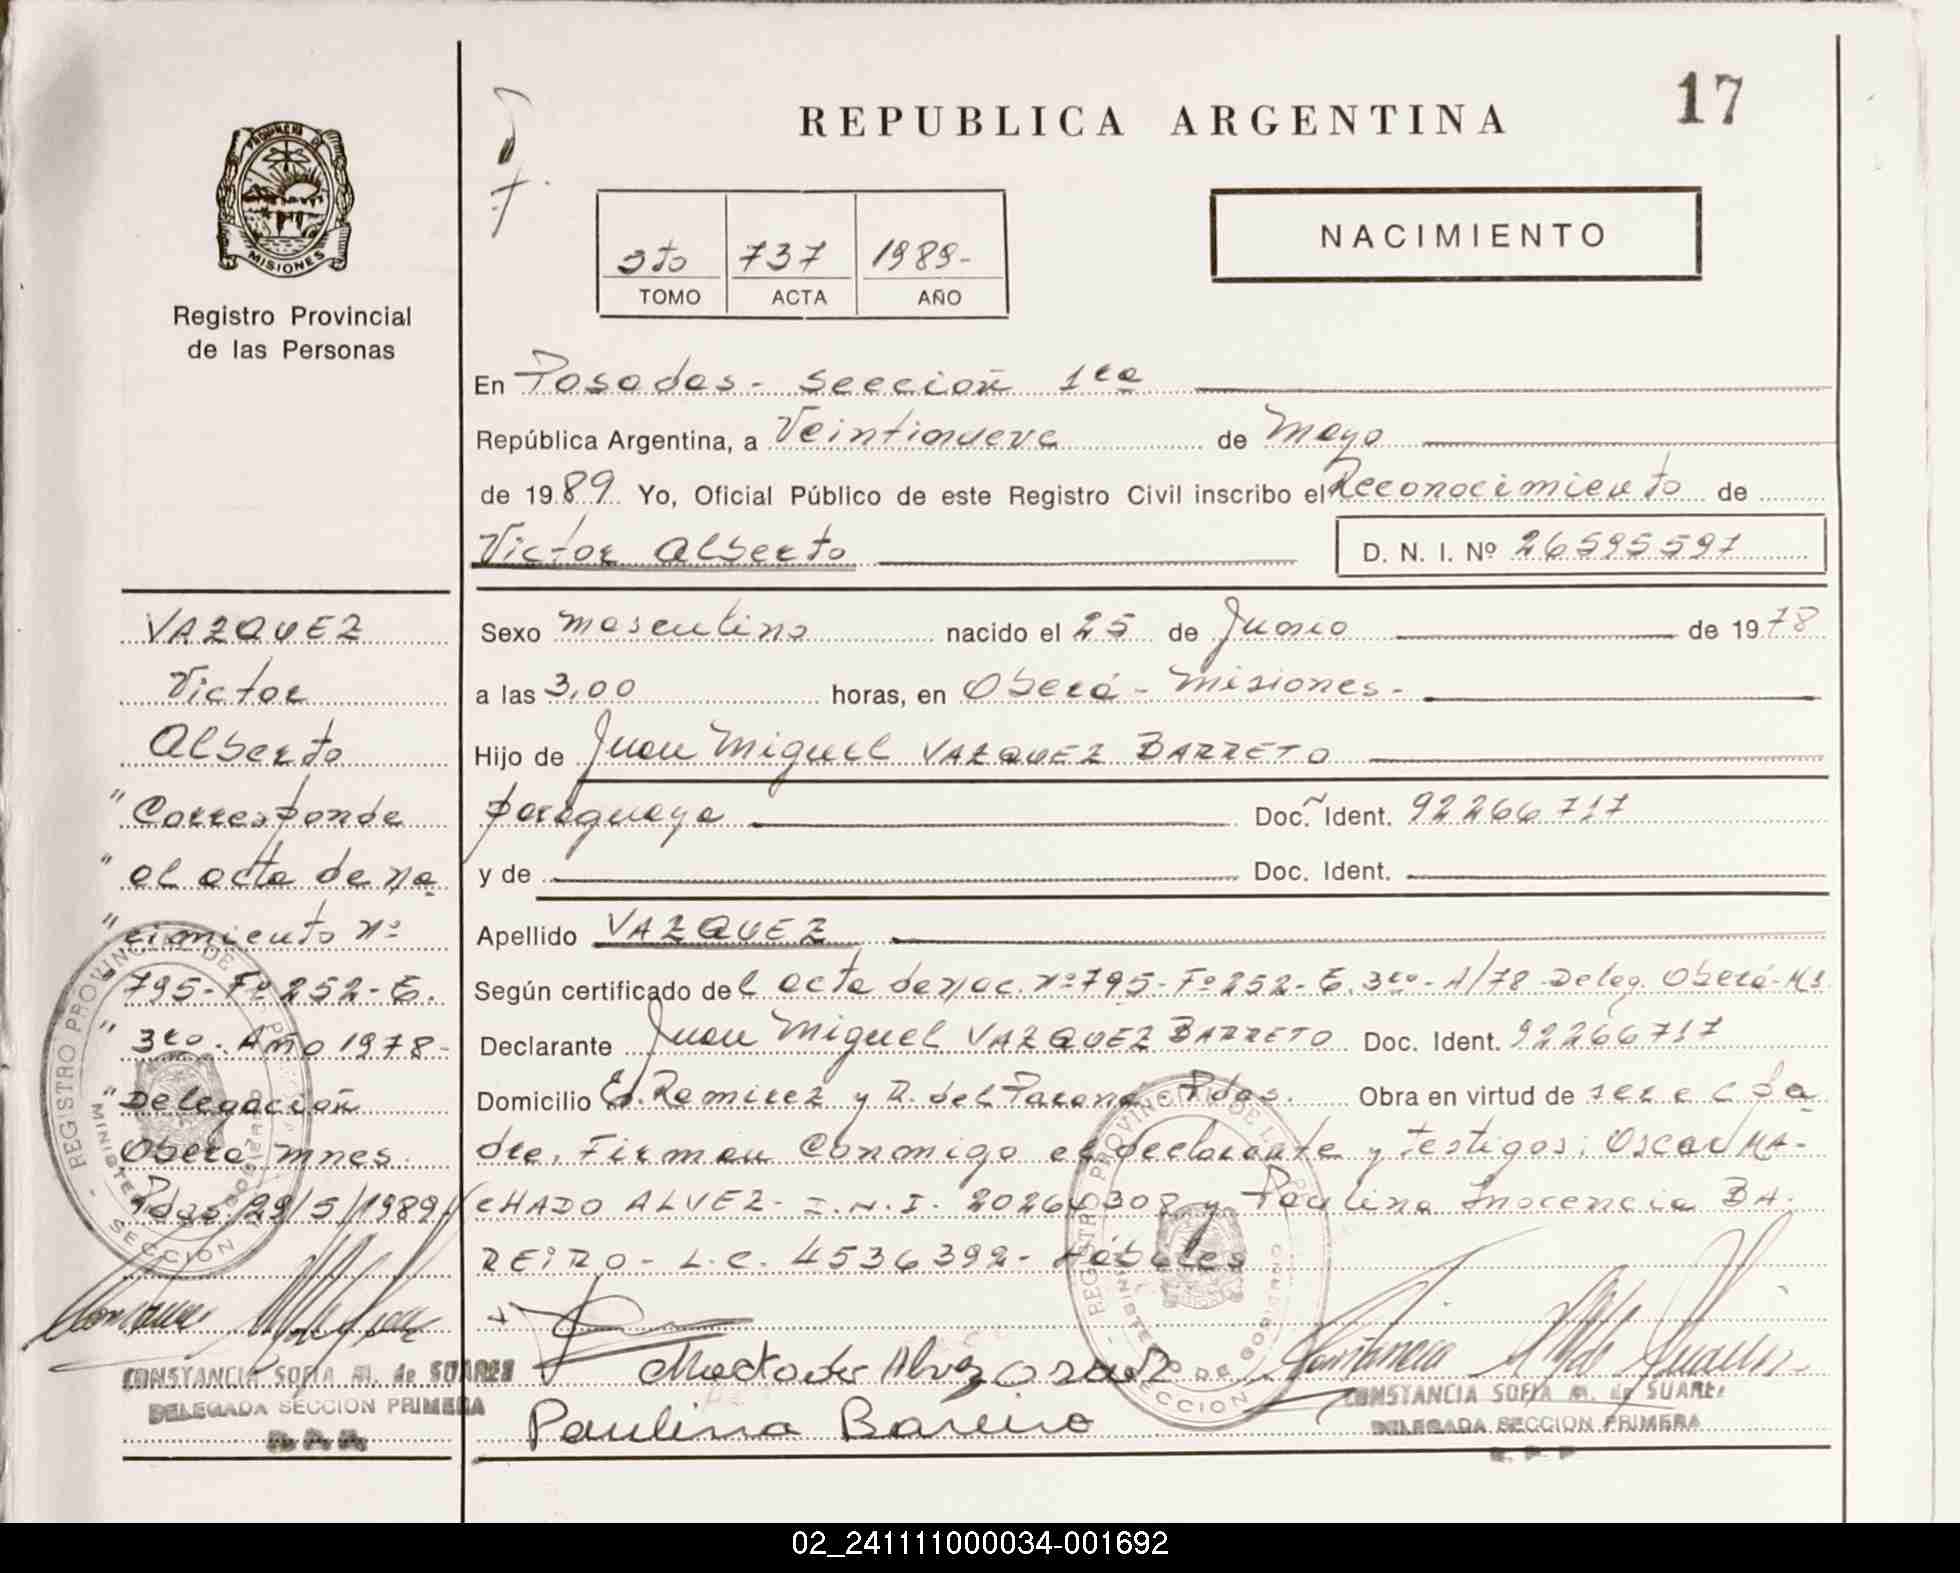 17
REPUBLICA ARGENTINA
NACIMIENTO
PROVINCIA DE
MISIONES
Registro Provincial
de las Personas
5to 737 1989-
TOMO ACTA AÑO
En Posadas - Sección 1ra
República Argentina, a Veintinueve de Mayo
de 1989 Yo, Oficial Público de este Registro Civil inscribo el Reconocimiento de
Victor Alberto D. N. I. Nº 26595597
Sexo masculino nacido el 25 de Junio de 1978
a las 3,00 horas, en Oberá - Misiones -
Hijo de Juan Miguel VAZQUEZ BARRETO
paraguayo Doc. Ident. 92266717
y de Doc. Ident.
Apellido VAZQUEZ
Según certificado del acta de nac. nº 795 - Fº 252 - T. 3ro - A/78 Deleg. Oberá - Ms
Declarante Juan Miguel VAZQUEZ BARRETO Doc. Ident. 92266717
Domicilio Ramirez y R. del Paraná - Pdas. Obra en virtud de ser el pa
dre. Firman Conmigo el declarante y testigos: Oscar MA-
CHADO ALVEZ - D.N.I. 20264308 y Paulina Inocencia BA-
REIRO - L.C. 4536392 - Hábiles
Machado Alvez Oscar
Paulina Bareiro
CONSTANCIA SOFIA M. de SUAREZ
DELEGADA SECCION PRIMERA
R. P. P.
VAZQUEZ
Victor
Alberto
"Corresponde
"al acta de na
"cimiento nº
"795 - Fº 252 - T.
"3ro. Año 1978 -
"Delegación
Oberá Mnes.
Pdas 29/5/1989
CONSTANCIA SOFIA M. de SUAREZ
DELEGADA SECCION PRIMERA
R. P. P.
02_241111000034-001692